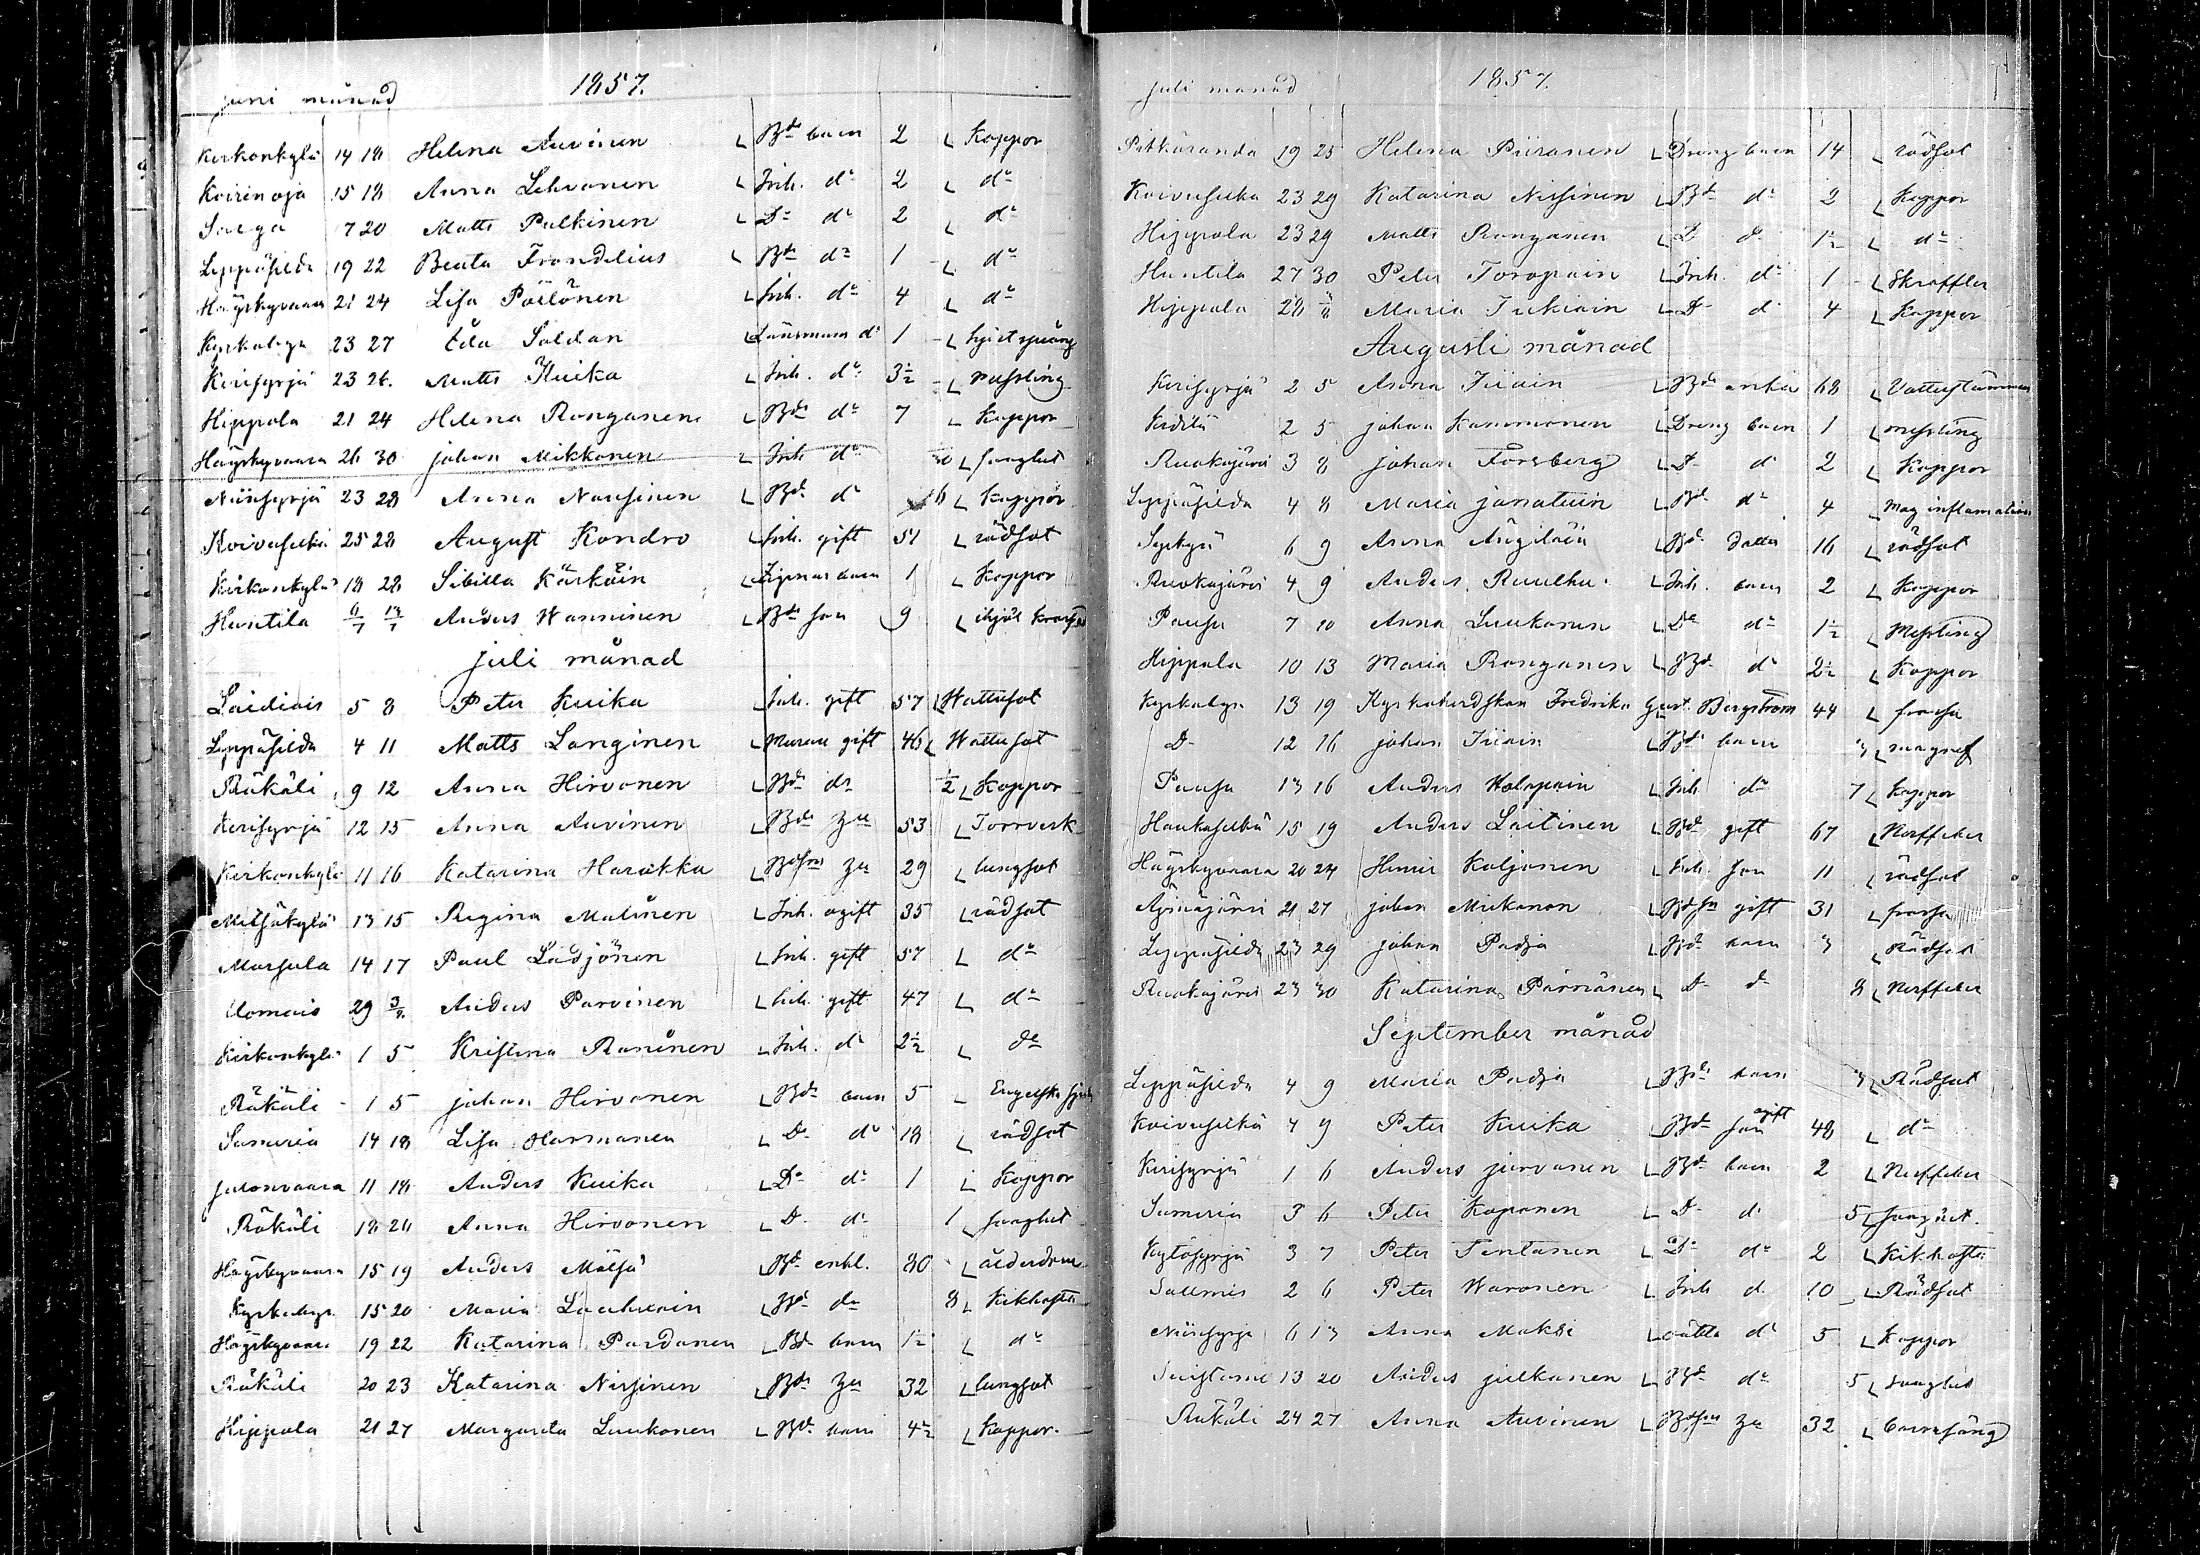 juni månad 1857.
Kirkonkylä 14 18 Helena Auvinen Bde barn 2 Koppor
Koirinoja 15 18 Anna Lehvonen Inh. do 2 do
7 20 Matts Pulkinen Do do 2 do
Leppäsilda 19 22 Beata Frondelius Bde do 1 do
Häyskynvaara 21 24 Lisa Pöllönen Inh. do 4 do
Kyrkobyn 23 27 Eda Soldan Länsmans do 1
Kirisyrjä 23 26. Matts Kuika Inh. do 3½ messling
Hippola 21 24 Helena Ronganen Bde do 7 Koppor
Häyskynvaara 26 30 Johan Mikkonen Inh do
Niinisyrjä 23 28 Anna Naussinen Bde do 6 Koppor
Koivuselkä 25 28 August Kondro Inh. gift 51 rödsot
Kirkonkylä 18 28 Sibilla Kärkäin barn 1 Koppor
Huntila 6/7 13/7 Anders Wanninen Bde son 9
juli månad
Läidiois 5 8 Peter Kuika Inh. gift 57 Wattusot
Leppäsilda 4 11 Matts Langinen Murare gift 46 Wattusot
Räkäli 9 12 Anna Hirvonen Bde do ½ Koppor
Kirisyrjä 12 15 Anna Auvinen Bde 53 Torrverk
Kirkonkylä 11 16 Katarina Harakka 29 lungsot
Mitsäkylä 13 15 Regina Malinen Inh. ogift 35 rödsot
Morsula 14 17 Paul Lädjönen Inh. gift 57 do
Uomais 29 3/7 Anders Parvinen Inh. gift 47 do
Kirkonkylä 1 5 Kristina Raninen Inh. do 2½ do
Räkäli 1 5 Johan Hirvonen Bde barn 5 Engelska
Sumeria 14 18 Lisa Harmanen Do do 18 rödsot
Jutosvaara 11 18 Anders Kuika Do do 1 Koppor
Räkäli 18 20 Anna Hirvonen Do do 1
Häyskynvaara 15 19 Anders Mälsä Bde enkl. 80
Kyrkobyn 15 20 Maria Bde do 8 Kikhosta
Häyskynvaara 19 22 Katarina Pardanen Bde barn 1½ do
Räkäli 20 23 Katarina Nissinen Bde 32 lungsot
Hippola 21 27 Margareta Luukonen Bde barn 4½ Koppor.
juli månad 1857.
Pitkäranda 19 25 Helena Piiranen Dreng barn 14 rödsot
Koivuselkä 23 29 Katarina Nissinen Bde do 2 Koppor
Hippola 23 29 Matts Ronganen D d 1½ do
Huntila 27 30 Peter Toropain Inh. do 1 Skroffler
Hippola 28 Maria Inkiäin D d 4 Koppor
Augusti månad
Kirisyrjä 2 5 Anna Iiväin Bde enka 68
Kidilä 2 5 Johan Kammonen Dreng barn 1 messling
Ruokojärvi 3 8 Johan Forsberg D d 2 Koppor
Leppäsilda 4 8 Maria Janatuin Bde do 4 Mag inflamation
Syskyä 6 9 Anna Äugiläin Bde dotter 16 rödsot
Ruokojärvi 4 9 Anders Ruulhu Inh. barn 2 Koppor
Pausu 7 10 Anna Luukonen Do do 1½ Messling
Hippola 10 13 Maria Ronganen Bde do 2½ Koppor
Kyrkobyn 13 19 Kyrkoherdskan Fredrika Gust. Bergström 44 frossa
D 12 16 Johan Iiväin Bde barn 3 magref
Pausu 13 16 Anders Holopain Inh do 7 Koppor
Haukaselkä 15 19 Anders Laitinen Bde gift 67 Nerffeber
Häyskynvaara 20 24 Henric Koljonen Inh. son 11 rödsot
Äimäjärvi 21 27 Johan Miikonen gift 31 frossa
Leppäsilda 23 29 Johan Padja Bde barn 3 Rödsot
Ruokojärvi 23 30 Katarina Pärnänen D d 8 Nerffeber
September månad
Leppäsilda 4 9 Maria Padja Bde barn 3 Rödsot
Koivuselkä 4 9 Peter Kuika Bde son ogift 48 do
Kirisyrjä 1 6 Anders Jurvanen Bde barn 2 Nerffeber
Sumeria 3 6 Peter Koponen D d 5
Kytösyrjä 3 7 Peter Tentanen Do do 2 Kikhosta
Sallmis 2 6 Peter Waronen Inh d 10 Rödsot
Niinisyrjä 6 13 Anna Maksi oäkta do 5 Koppor
Suistamo 13 20 Anders Julkunen Bde do 5
Räkäli 24 27 Anna Auvinen 32 barnsäng